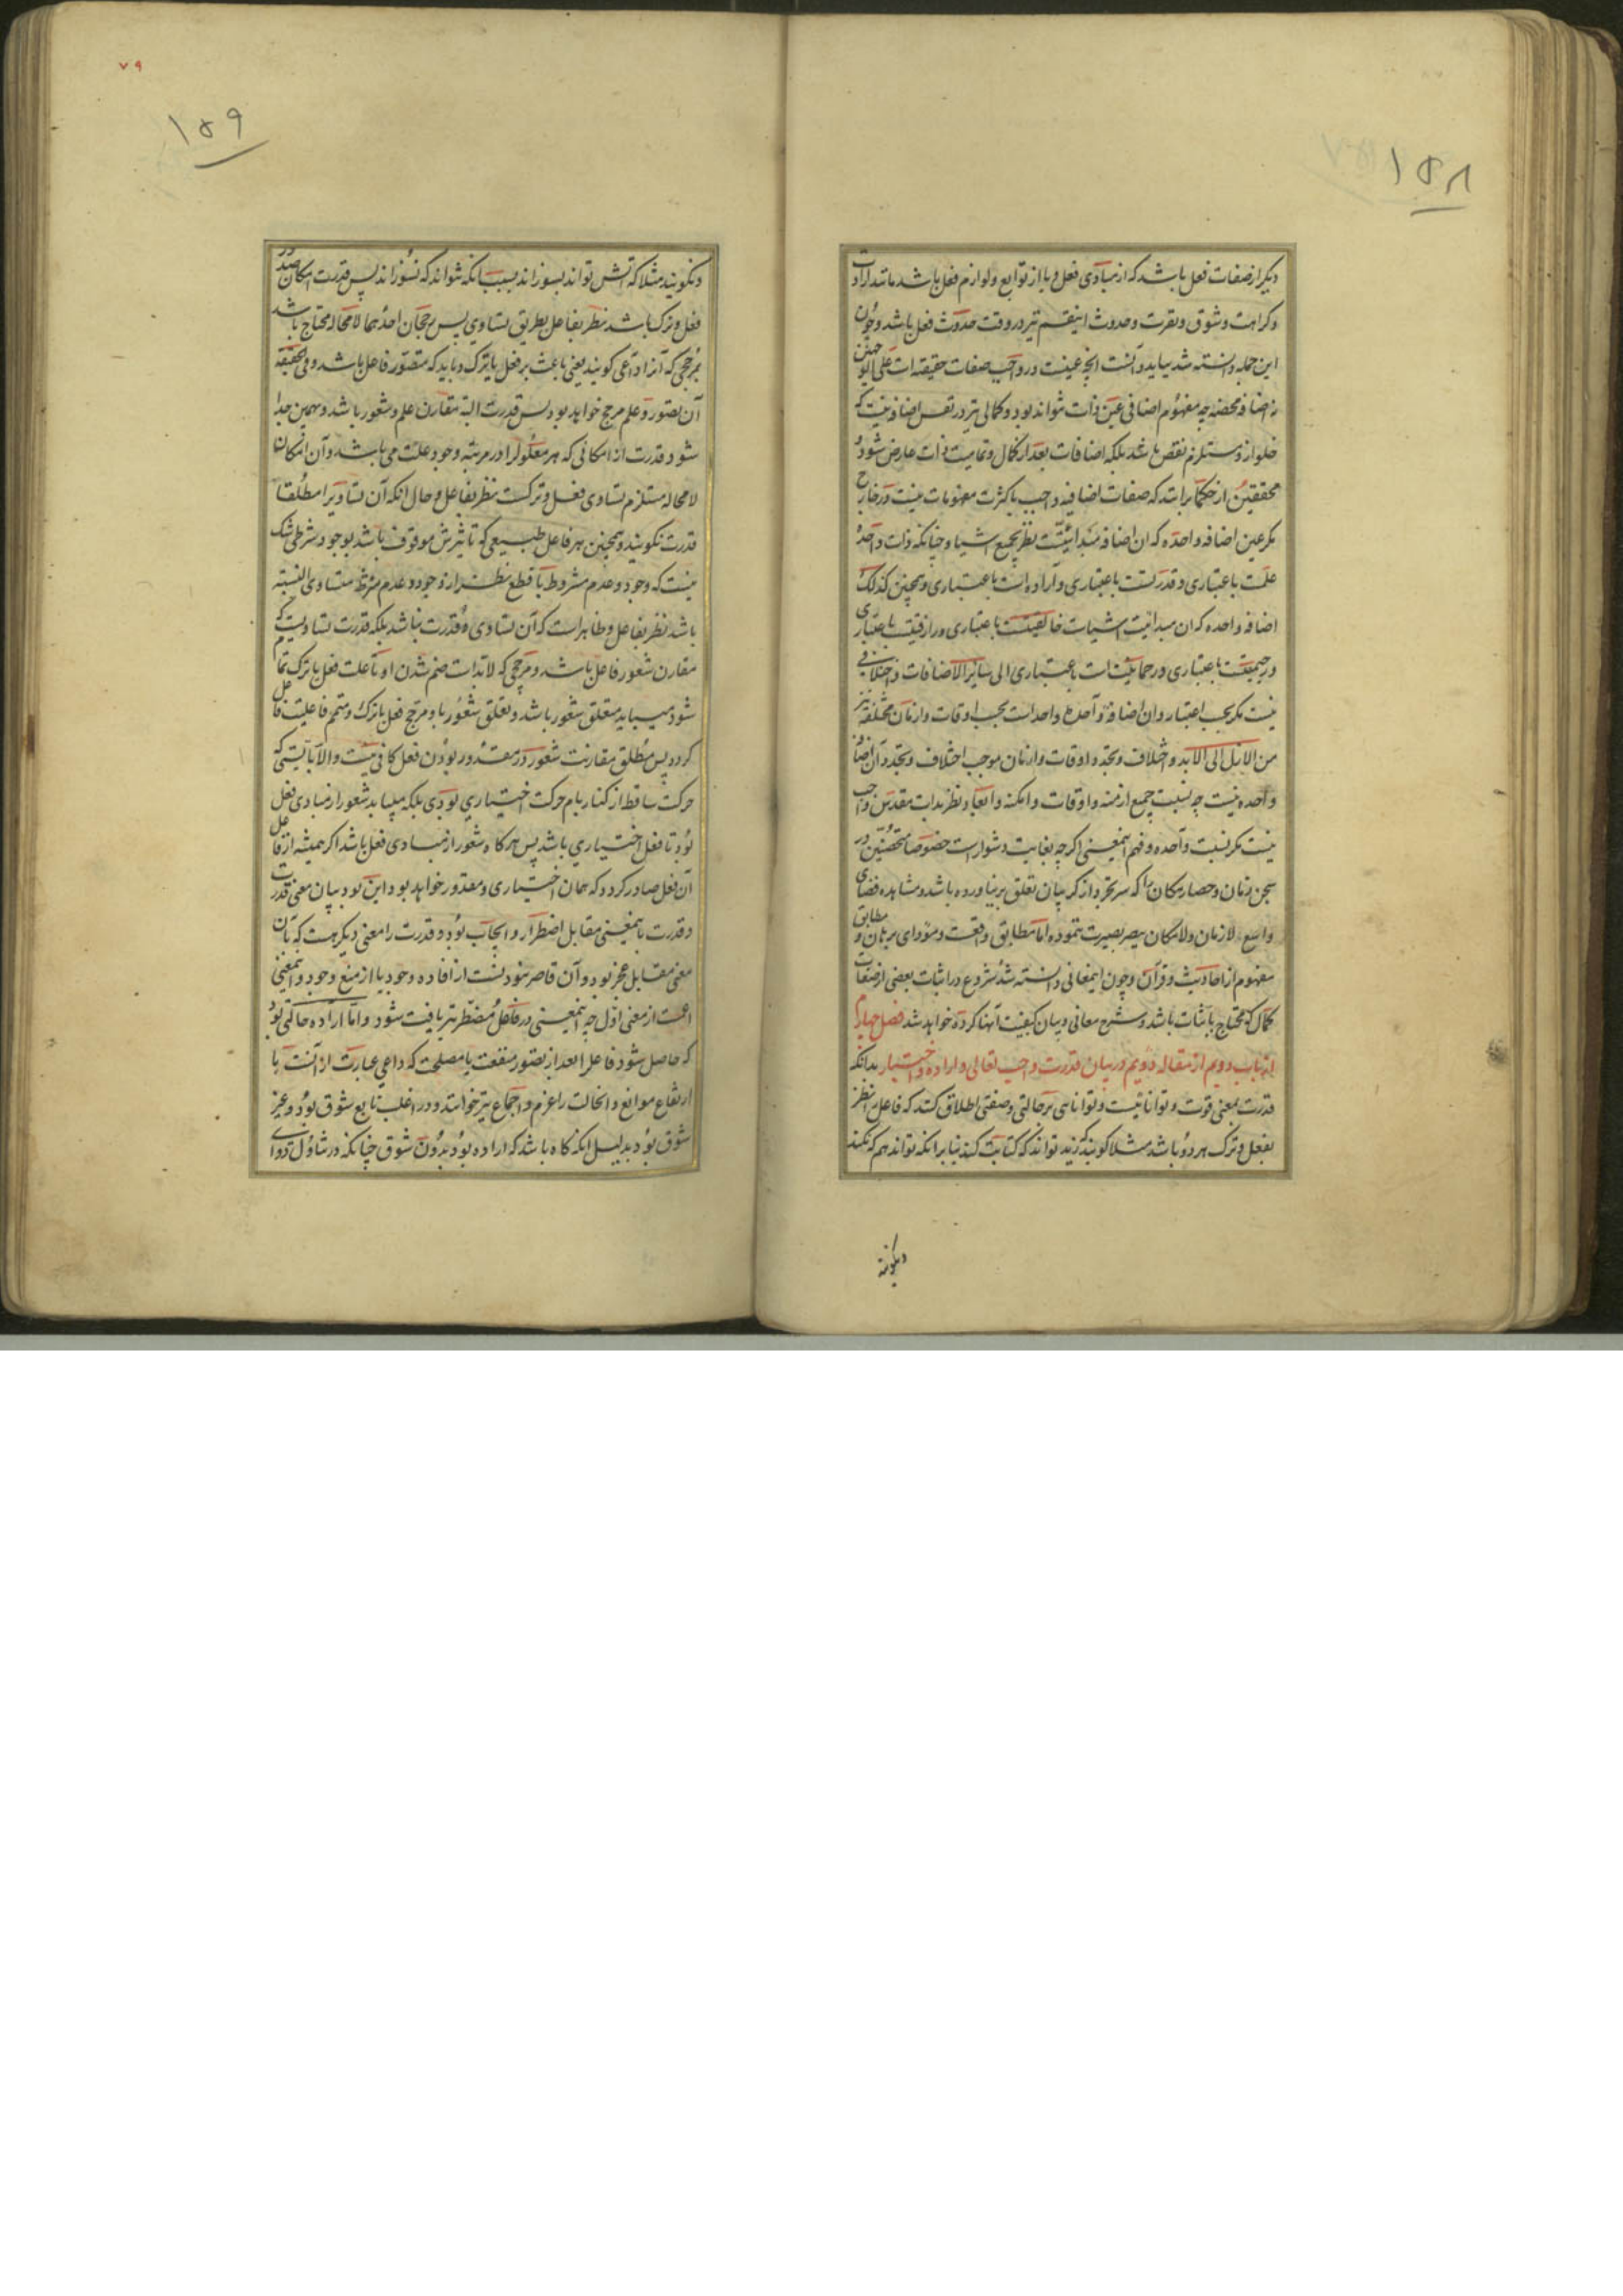 ۱۵۸
دیگر از صفات فعل باشد که از مبادی فعل و یا از توابع و لوازم فعل باشد مانند ارادت
و کراهت و شوق و نفرت و حدوث اینقسم نیز در وقت حدوث فعل باشد و چون
این جمله دانسته شد بباید دانست انچه عینست در واجب صفات حقیقه است علی الوجهین
نه اضافه محضه چه مفهوم اضافی عین ذات نتواند بود و کمالی نیز در نفس اضافه نیست که
خلو ازو مستلزم نقص باشد بلکه اضافات بعد از کمال و تمامیت ذات عارض شود و
محققین از حکما برانند که صفات اضافیه واجب با کثرت مفهومات نیست در خارج
مگر عین اضافه واحده که ان اضافه مبدائیتست نظر بجمیع اشیا و چنانکه ذات واحده
علمست باعتباری و قدرتست باعتباری و اراده است باعتباری و همچنین کذلک
اضافه واحده که ان مبدائیت اشیاست خالقیتست باعتباری و رازقیتست باعتباری
و رحیمیتست باعتباری و رحمانیتست باعتباری الی سایر الاضافات و اختلافی
نیست مگر بحسب اعتبار و ان اضافه واحده واحد است بحسب اوقات و ازمان مختلفه نیز
من الازل الی الابد و اختلاف و تجدد اوقات و ازمان موجب اختلاف و تجدد آن اضافه
واحده نیست چه نسبت جمیع ازمنه و اوقات و امکنه و ابعاد نظر بذات مقدس واجب
نیست مگر نسبت واحده و فهم اینمعنی اگرچه بغایت دشوار است خصوصا متحصنین در
سجن زمان و حصار مکان را که سر تجرد از گریبان تعلق بر نیاورده باشد و مشاهده فضای
واسع لازمان و لامکان ببصر بصیرت ننموده اما مطابق واقعست و مؤدای برهان و مطابق
مفهوم از احادیث و قرآن و چون اینمعانی دانسته شد شروع در اثبات بعضی از صفات
کمال که محتاج باثبات باشد و شرح معانی و بیان کیفیت آنها کرده خواهد شد فصل چهارم
از باب دویم از مقاله دویم در بیان قدرت واجب تعالی و اراده و اختیار بدانکه
قدرت بمعنی قوت و تواناییست و توانایی بر حالتی و صفتی اطلاق کنند که فاعل را نظر
بفعل و ترک هر دو باشد مثلا گویند که زید تواند که کتابت کند بنا برانکه تواند هم که نکند
و نگویند
۷۹
۱۵۹
و نگویند مثلا که آتش تواند بسوزاند بسبب انکه نتواند که نسوزاند پس قدرت امکان صدور
فعل و ترک باشد نظر بفاعل بطریق تساوی پس رجحان احدهما لامحاله محتاج باشد
بمرجحی که آنرا داعی گویند یعنی باعث بر فعل یا ترک و باید که متصور فاعل باشد و فی الحقیقه
آن تصور و علم مرجح خواهد بود پس قدرت البته مقارن علم و شعور باشد و بهمین جدا
شود قدرت از امکانی که هر معلول را در مرتبه وجود علت می باشد و آن امکان
لامحاله مستلزم تساوی فعل و ترکست نظر بفاعل و حال انکه آن تساویرا مطلقا
قدرت نگویند و همچنین هر فاعل طبیعی که تاثیرش موقوف باشد بوجود شرطی شک
نیست که وجود و عدم مشروط با قطع نظر از وجود و عدم شرط متساوی النسبه
باشد نظر بفاعل و ظاهر است که آن تساوی قدرت نباشد بلکه قدرت تساویست که
مقارن شعور فاعل باشد و مرجحی که لابد است ضم شدن او تا علت فعل یا ترک تمام
شود میباید متعلق شعور باشد و تعلق شعور باو مرجح فعل یا ترک و متمم فاعلیت فاعل
گردد پس مطلق مقارنت شعور در مقدور بودن فعل کافی نیست والا بایستی که
حرکت ساقط از کنار بام حرکت اختیاری بودی بلکه میباید شعور از مبادی فعل
بود تا فعل اختیاری باشد پس هر گاه شعور از مبادی فعل باشد اگر همیشه از فاعل
آن فعل صادر گردد که همان اختیاری و مقدور خواهد بود این بود بیان معنی قدرت
و قدرت باینمعنی مقابل اضطرار و ایجاب بود و قدرت را معنی دیگر هست که بان
معنی مقابل عجز بود و آن قاصر نبودنست از افاده وجود یا از منع وجود و اینمعنی
اعمست از معنی اول چه اینمعنی در فاعل مضطر نیز یافت شود و اما اراده حالتی بود
که حاصل شود فاعل را بعد از تصور منفعت یا مصلحت که داعی عبارت از آنست با
ارتفاع موانع و انحالت را عزم و اجماع نیز خوانند و در اغلب تابع شوق بود و غیر
شوق بود بدلیل انکه گاه باشد که اراده بود بدون شوق چنانکه در تناول دوای